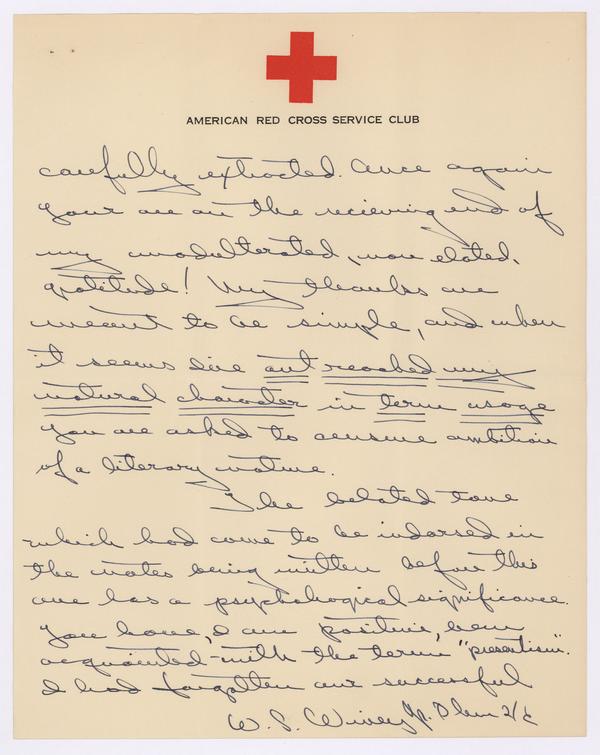 AMERICAN RED CROSS SERVICE CLUB
carefully extracted. Once again
your are on the recieving end of
my unadulterated, now elated,
gratitude! My thanks are
meant to be simple, and when
it seems I've out reached my
natural character in term usage
you are asked to censure ambition
of a literary nature.
The belated tone
which had come to be indorsed in
the notes being written before this
one has a psychological significance.
You have, I am positive, been
acquainted with the term "presentism".
I had forgotten our successful
W. S.